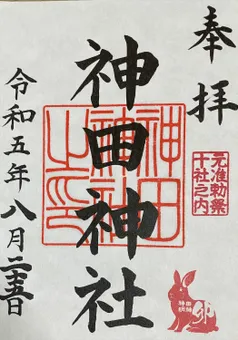 奉拝
元准勅祭
十社之内
神田神社
神田
神社
之印
卯
令和五年八月二十五日